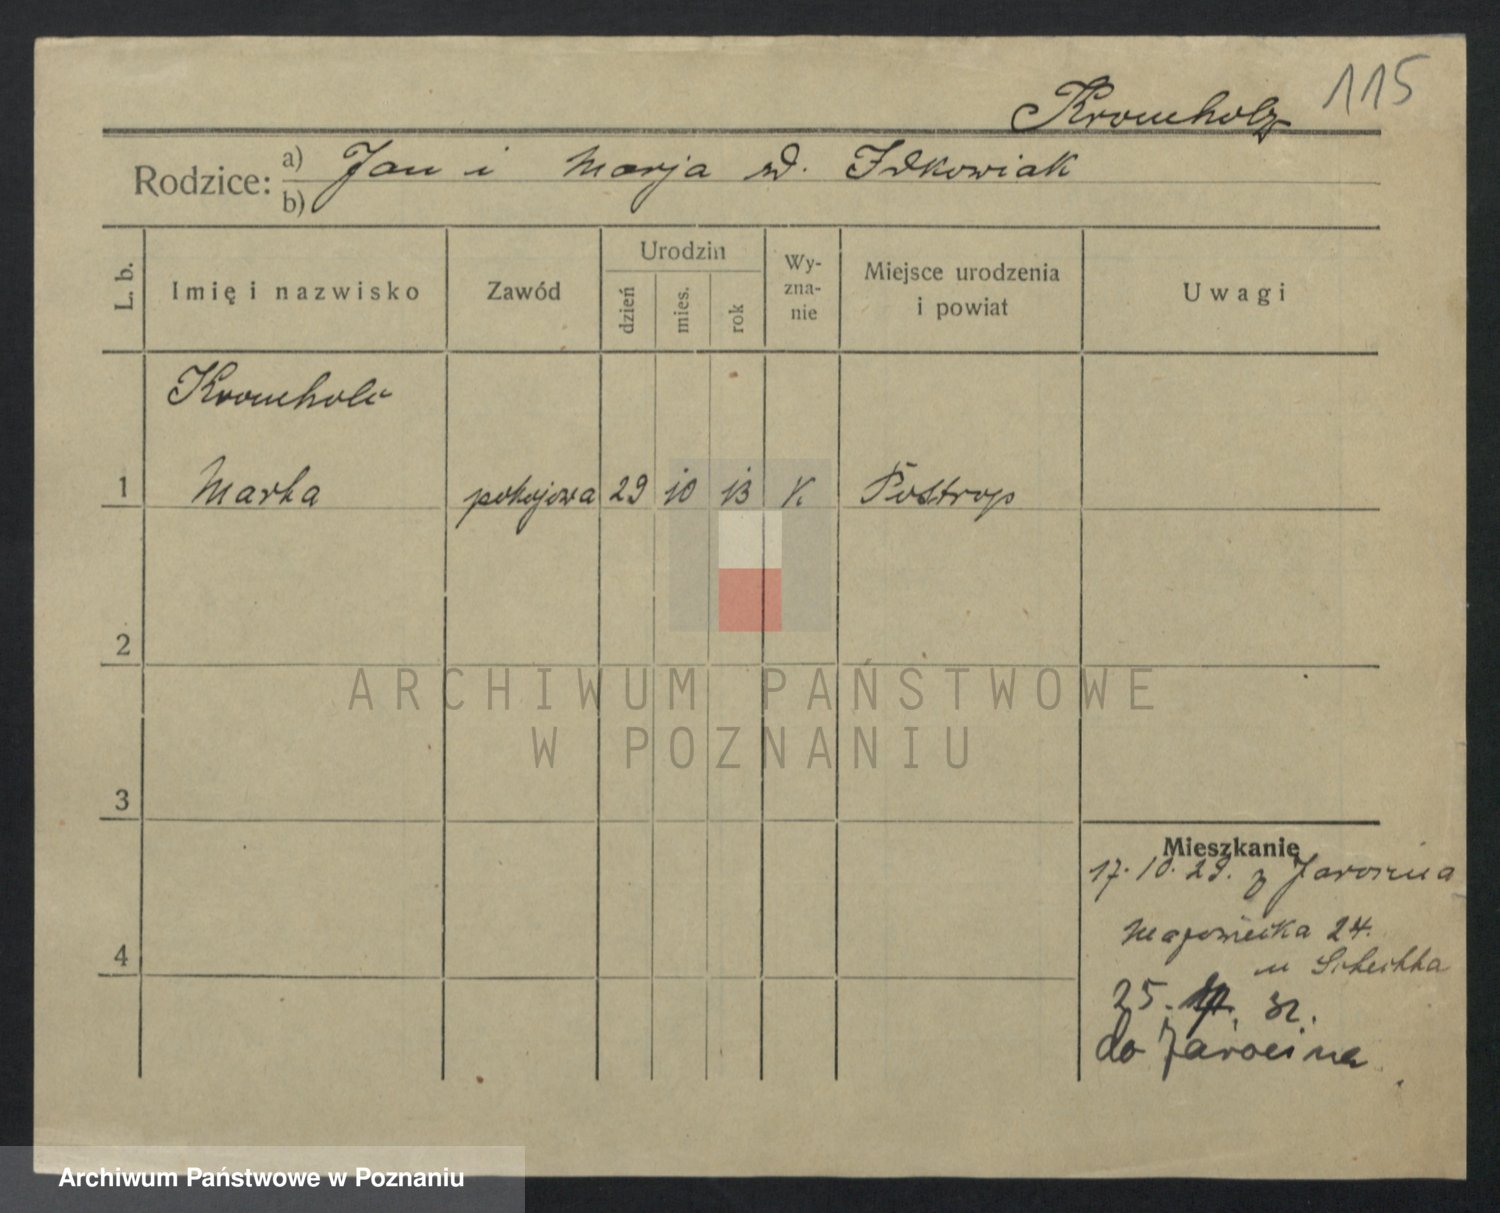 115
Kromcholz
Rodzice: a) Jan i Marja zd. Idkowiak
b)
L. b.
Imię i nazwisko
Zawód
Urodzin
dzień
mies.
rok
Wy-
zna-
nie
Miejsce urodzenia
i powiat
Uwagi
Kromcholc
1 Marta pokojowa 29 10 13 K Postrop
2
3
4
ARCHIWUM PAŃSTWOWE
W POZNANIU
Mieszkanie
17.10.29. z Jarocina
24.
u
25. 32.
do Jarocina
Archiwum Państwowe w Poznaniu